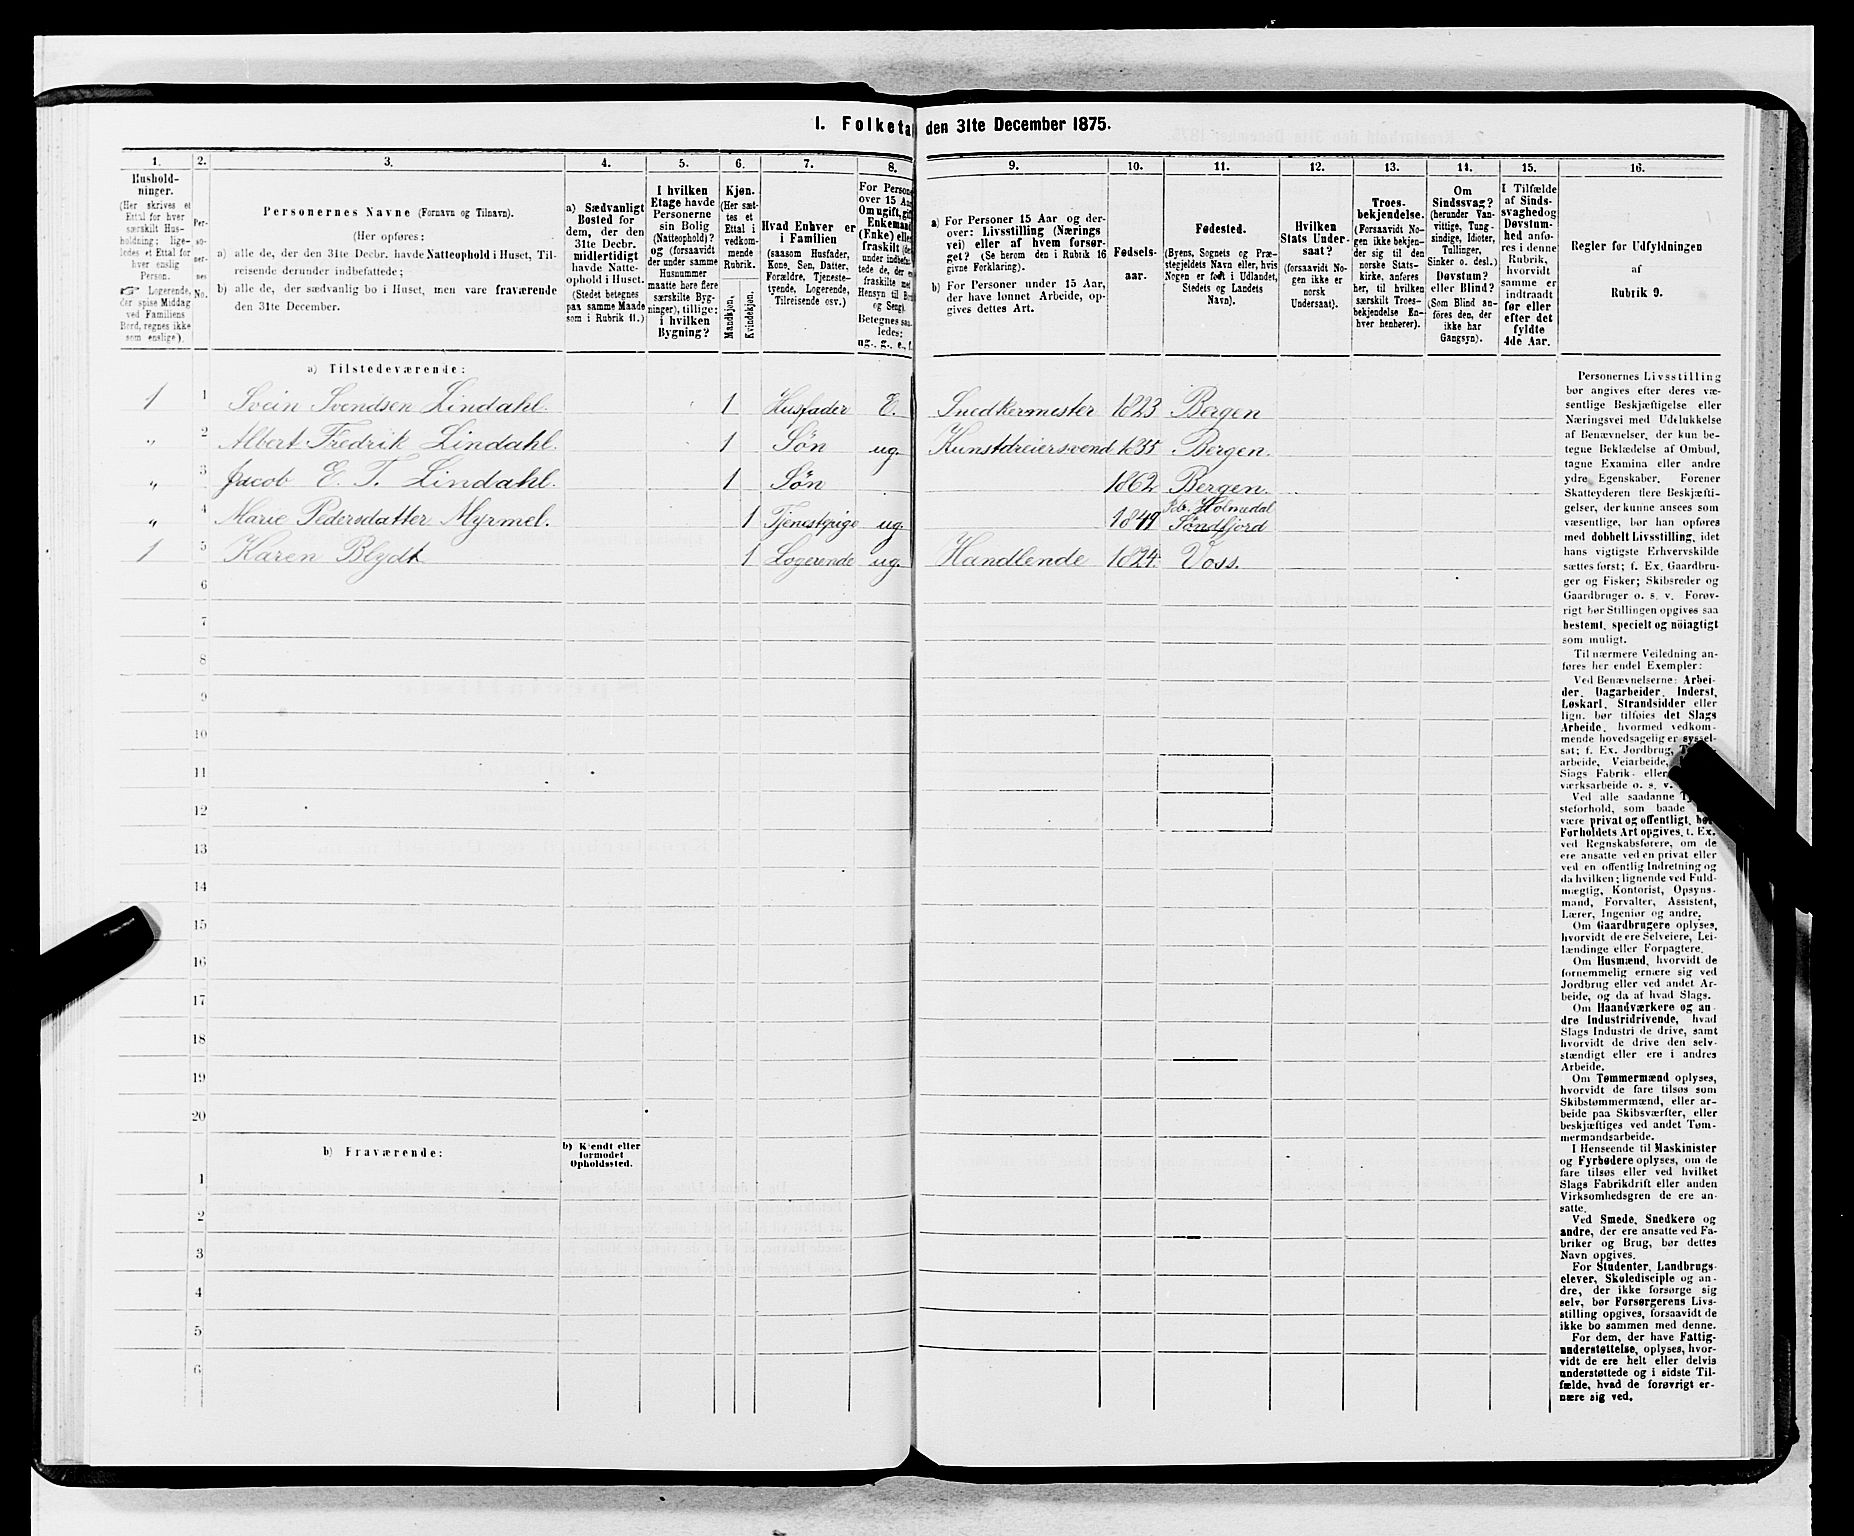 I. Folketæ den 31te December 1875.
1. 2. 3. 4. 5. 6. 7. 8. 9. 10. 11. 12. 13. 14. 15. 16.
Hushold-
ninger.
(Her skrives et
Ettal for hver
særskilt Hus-
holdning; lige-
ledes et Ettal for
hver enslig
Person.
☞ Logerende,
der spise Middag
ved Familiens
Bord, regnes ikke
som enslige).
Per-
so-
ner-
nes
No.
Personernes Navne (Fornavn og Tilnavn).
(Her opføres:
a) alle de, der den 31te Decbr. havde Natteophold i Huset, Til-
reisende derunder indbefattede;
b) alle de, der sædvanlig bo i Huset, men vare fraværende
den 31te December.
a) Sædvanligt
Bosted for
dem, der den
31te Decbr.
midlertidigt
havde Natte-
ophold i Huset.
(Stedet betegnes
paa samme Maade
som i Rubrik 11.)
I hvilken
Etage havde
Personerne
sin Bolig
(Natteophold)?
og (forsaavidt
der under samme
Husnummer
maatte høre flere
særskilte Byg-
ninger), tillige:
i hvilken
Bygning?
Kjøn.
(Her sæt-
tes et
Ettal i
vedkom-
mende
Rubrik.
Mandkjøn.
Kvindekjøn.
Hvad Enhver er
i Familien
(saasom Husfader,
Kone, Søn, Datter,
Forældre, Tjeneste-
tyende, Logerende,
Tilreisende osv.)
For Persone
over 15 Aa
Om ugift, gift
Enkemand
(Enke) elle
fraskilt (de
under indbefat
tede de, der er
fraskilte med
Hensyn til Bo
og Seng).
Betegnes saa
ledes:
ug., g., e., f.
a) For Personer 15 Aar og der-
over: Livsstilling (Nærings
vei) eller af hvem forsør-
get? (Se herom den i Rubrik 16
givne Forklaring).
b) For Personer under 15 Aar,
der have lønnet Arbeide, op-
gives dettes Art.
Fødsels-
aar.
Fødested.
(Byens, Sognets og Præ-
stegjeldets Navn eller, hvis
Nogen er født i Udlandet,
Stedets og Landets
Navn).
Hvilken
Stats Under-
saat?
(forsaavidt No-
gen ikke er
norsk
Undersaat).
Troes-
bekjendelse.
(Forsaavidt No-
gen ikke bekjen-
der sig til den
norske Stats-
kirke, anføres
her, til hvilken
særskilt Troes-
bekjendelse En-
hver henhører).
Om
Sindssvag?
(herunder Van-
vittige, Tung-
sindige, Idioter,
Tullinger,
Sinker o. desl.)
Døvstum?
eller Blind?
(Som Blind an-
føres den, der
ikke har
Gangsyn).
I Tilfælde
af Sinds-
svaghedog
Døvstum-
hed anfø-
res i denne
Rubrik,
hvorvidt
samme er
indtraadt
før eller
efter det
fyldte
4de Aar.
Regler for Udfyldningen
af
Rubrik 9.
a) Tilstedeværende:
1 1 Svein Svendsen Lindahl. 1 Husfader E. Snedkermester 1823 Bergen
" 2 Albert Fredrik Lindahl. 1 Søn ug. Kunstdreiersvend 1855 Bergen.
" 3 Jacob E. T. Lindahl. 1 Søn 1862 Bergen.
" 4 Marie Pedersdatter Myrmel. 1 Tjenestepige ug. 1849 Holmedal
Søndfjord
1 5 Karen Blydt 1 Logerende ug. Handlende 1824. Voss.
6
7
8
9
10
11
12
13
14
15
16
17
18
19
20
b) Fraværende:
b) Kjendt eller
formodet
Opholdssted.
1
2
3
4
5
6
Personernes Livsstilling
bør angives efter deres væ-
sentlige Beskjæftigelse eller
Næringsvei med Udelukkelse
af Benævnelser, der kun be-
tegne Beklædelse af Ombud,
tagne Examina eller andre
ydre Egenskaber. Forener
Skatteyderen flere Beskjæfti-
gelser, der kunne ansees som
væsentlige, bør han opføres
med dobbelt Livsstilling, idet
hans vigtigste Erhvervskilde
sættes først; f. Ex. Gaardbru-
ger og Fisker; Skibsreder og
Gaardbruger o. s. v. Forøv-
rigt bør Stillingen opgives saa
bestemt, specielt og nöiagtigt
som muligt.
Til nærmere Veiledning an-
føres her endel Exempler:
Ved Benævnelserne: Arbei-
der, Dagarbeider, Inderst,
Løskarl, Strandsidder eller
lign. bør tilføies det Slags
Arbeide, hvormed vedkom-
mende hovedsagelig er syssel-
sat; f. Ex. Jordbrug,
arbeide, Veiarbeide,
Slags Fabrik- eller
værksarbeide o. s. v.
Ved alle saadanne
steforhold, som baade
være privat og offentligt, bør
Forholdets Art opgives, t. Ex.
ved Regnskabsførere, om de
ere ansatte ved en privat eller
ved en offentlig Indretning og
da hvilken; lignende ved Fuld-
mægtig, Kontorist, Opsyns-
mand, Forvalter, Assistent,
Lærer, Ingeniør og andre.
Om Gaardbrugere oplyses,
hvorvidt de ere Selveiere, Lei-
lændinge eller Forpagtere.
Om Husmænd, hvorvidt de
fornemmelig ernære sig ved
Jordbrug eller ved andet Ar-
beide, og da af hvad Slags.
Om Haandværkere og an-
dre Industridrivende, hvad
Slags Industri de drive, samt
hvorvidt de drive den selv-
stændigt eller ere i andres
Arbeide.
Om Tømmermænd oplyses,
hvorvidt de fare tilsøs som
Skibstømmermænd, eller ar-
beide paa Skibsværfter, eller
beskjæftiges ved andet Tøm-
mermandsarbeide.
I Henseende til Maskinister
og Fyrbødere oplyses, om de
fare tilsøs eller ved hvilket
Slags Fabrikdrift eller anden
Virksomhedsgren de ere an-
satte.
Ved Smede, Snedkere og
andre, der ere ansatte ved Fa-
briker og Brug, bør dettes
Navn opgives.
For Studenter, Landbrugs-
elever, Skoledisciple og an-
dre, der ikke forsørge sig
selv, bør Forsørgerens Livs-
stilling opgives, forsaavidt de
ikke bo sammen med denne.
For dem, der have Fattig-
understøttelse, oplyses, hvor-
vidt de ere helt eller delvis
understøttede og i sidste Til-
fælde, hvad de forøvrigt er-
nære sig ved.